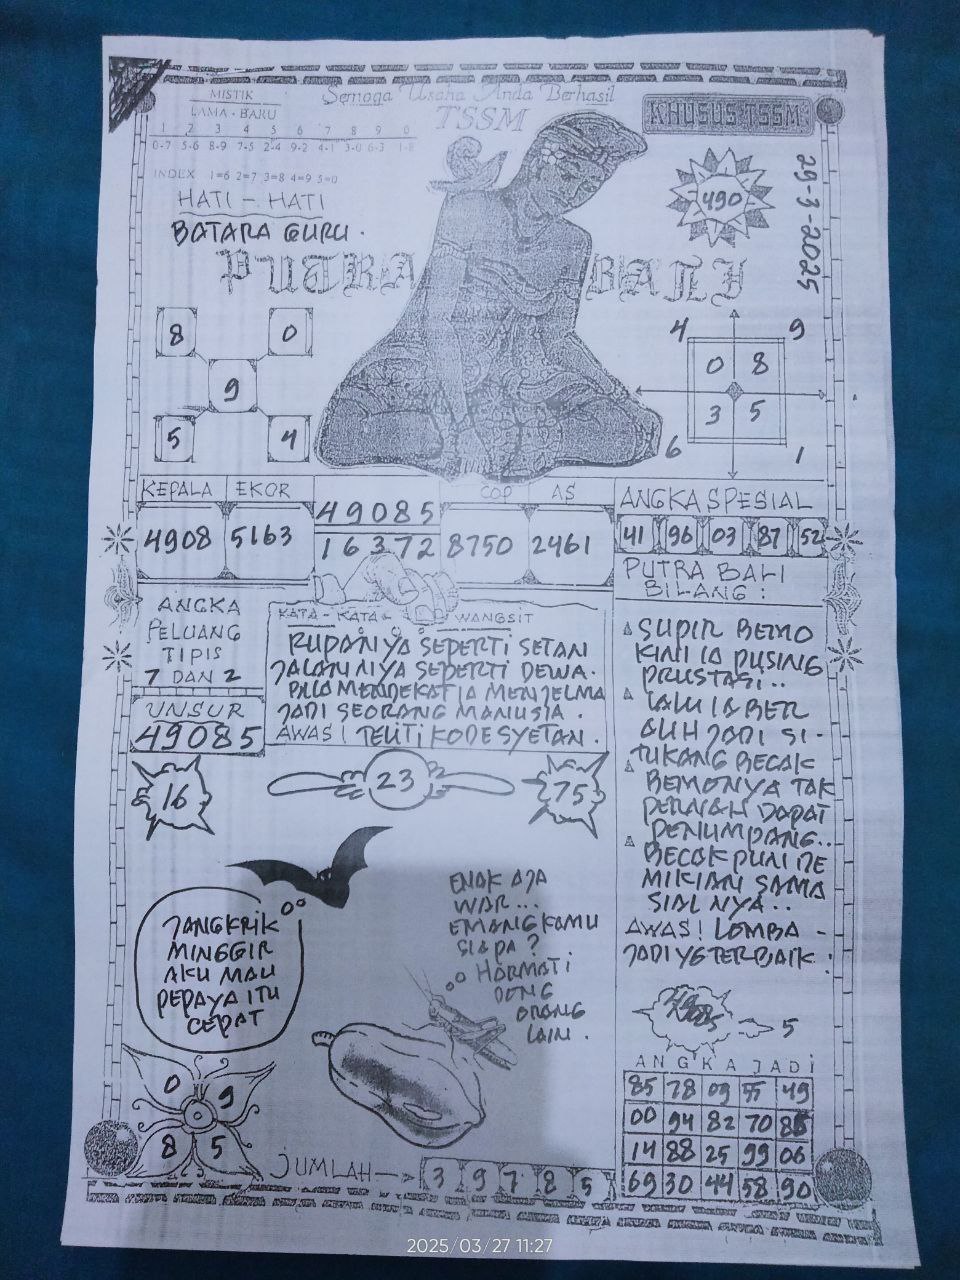 Semoga Usaha Anda Berhasil
TSSM
KHUSUS TSSM
MISTIK
LAMA - BARU
1 2 3 4 5 6 7 8 9 0
0-7 5-6 8-9 7-5 2-4 9-2 4-1 3-0 6-3 1-8
INDEX 1=6 2=7 3=8 4=9 5=0
HATI - HATI
BATARA GURU .
490
29-3-2025
PUTRA BALI
8 0
9
5 4
4 9
0 8
3 5
6 1
KEPALA EKOR COP AS
4908 5163 8750 2461
49085
16372
ANGKA SPESIAL
41 96 03 87 52
PUTRA BALI
BILANG :
SUPIR BEMO
KINI IA PUSING
PRUSTASI..
LALU IA BER
ALIH JADI SI -
TUKANG BECAK
BEMONYA TAK
PERNAH DAPAT
PENUMPANG..
BECAK PUN DE
MIKIAN SAMA
SIALNYA..
AWAS! LOMBA -
JADI YG TERBAIK :
ANGKA
PELUANG
TIPIS
7 DAN 2
UNSUR
49085
KATA - KATA WANGSIT
RUPANYA SEPERTI SETAN
JALANNYA SEPERTI DEWA .
BILA MENDEKAT IA MENJELMA
JADI SEORANG MANUSIA .
AWAS! TELITI KODE SYETAN .
16 23 75
JANGKRIK
MINGGIR
AKU MAU
PEPAYA ITU
CEPAT
ENAK AJA
WAR...
EMANG KAMU
SIAPA ?
HORMATI
DONG
ORANG
LAIN .
0 9
8 5
JUMLAH
3 9 7 8 5
5
ANGKA JADI
85 78 09 55 49
00 94 82 70
14 88 25 99 06
69 30 44 58 90
2025/03/27 11:27